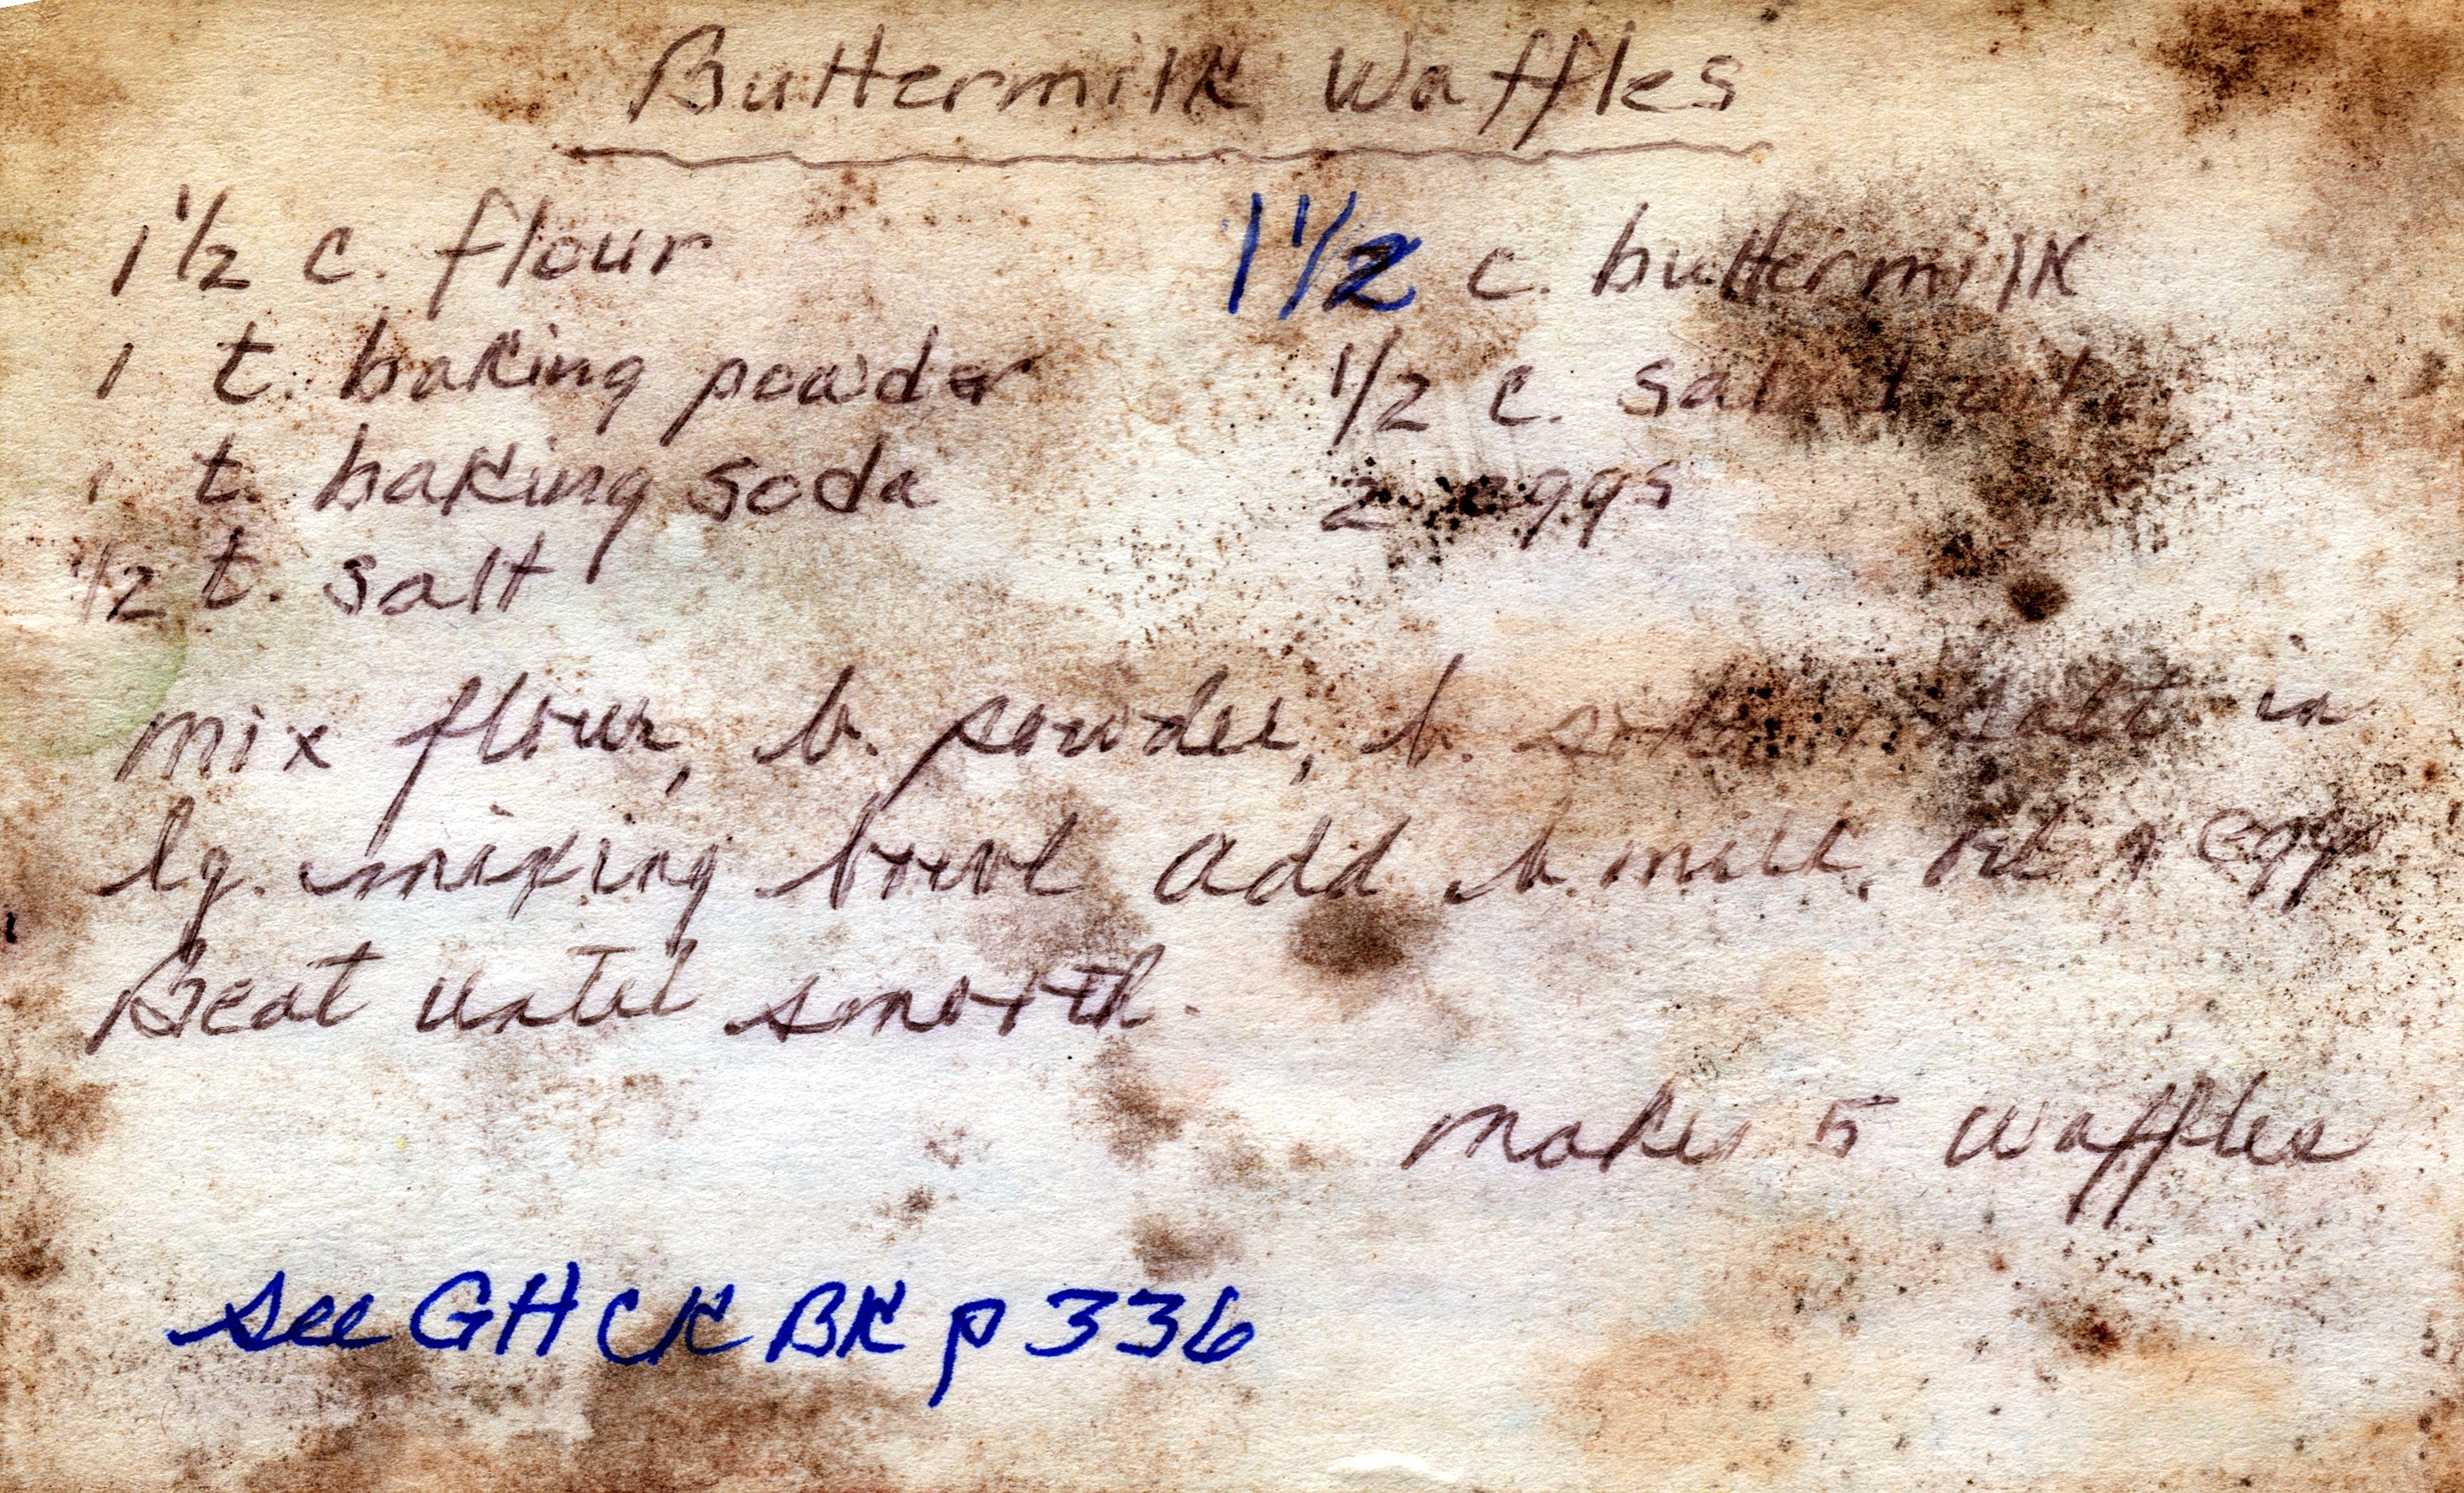 Buttermilk Waffles
1 1/2 c. flour
1 t. baking powder
1 t. baking soda
1/2 t. salt
1 1/2 c. buttermilk
1/2 c. salad oil
2 eggs
Mix flour, b. powder, b. soda salt in
lg. mixing bowl add b. milk, oil & eggs
Beat until smooth.
Makes 5 waffles
see GH CK BK p 336